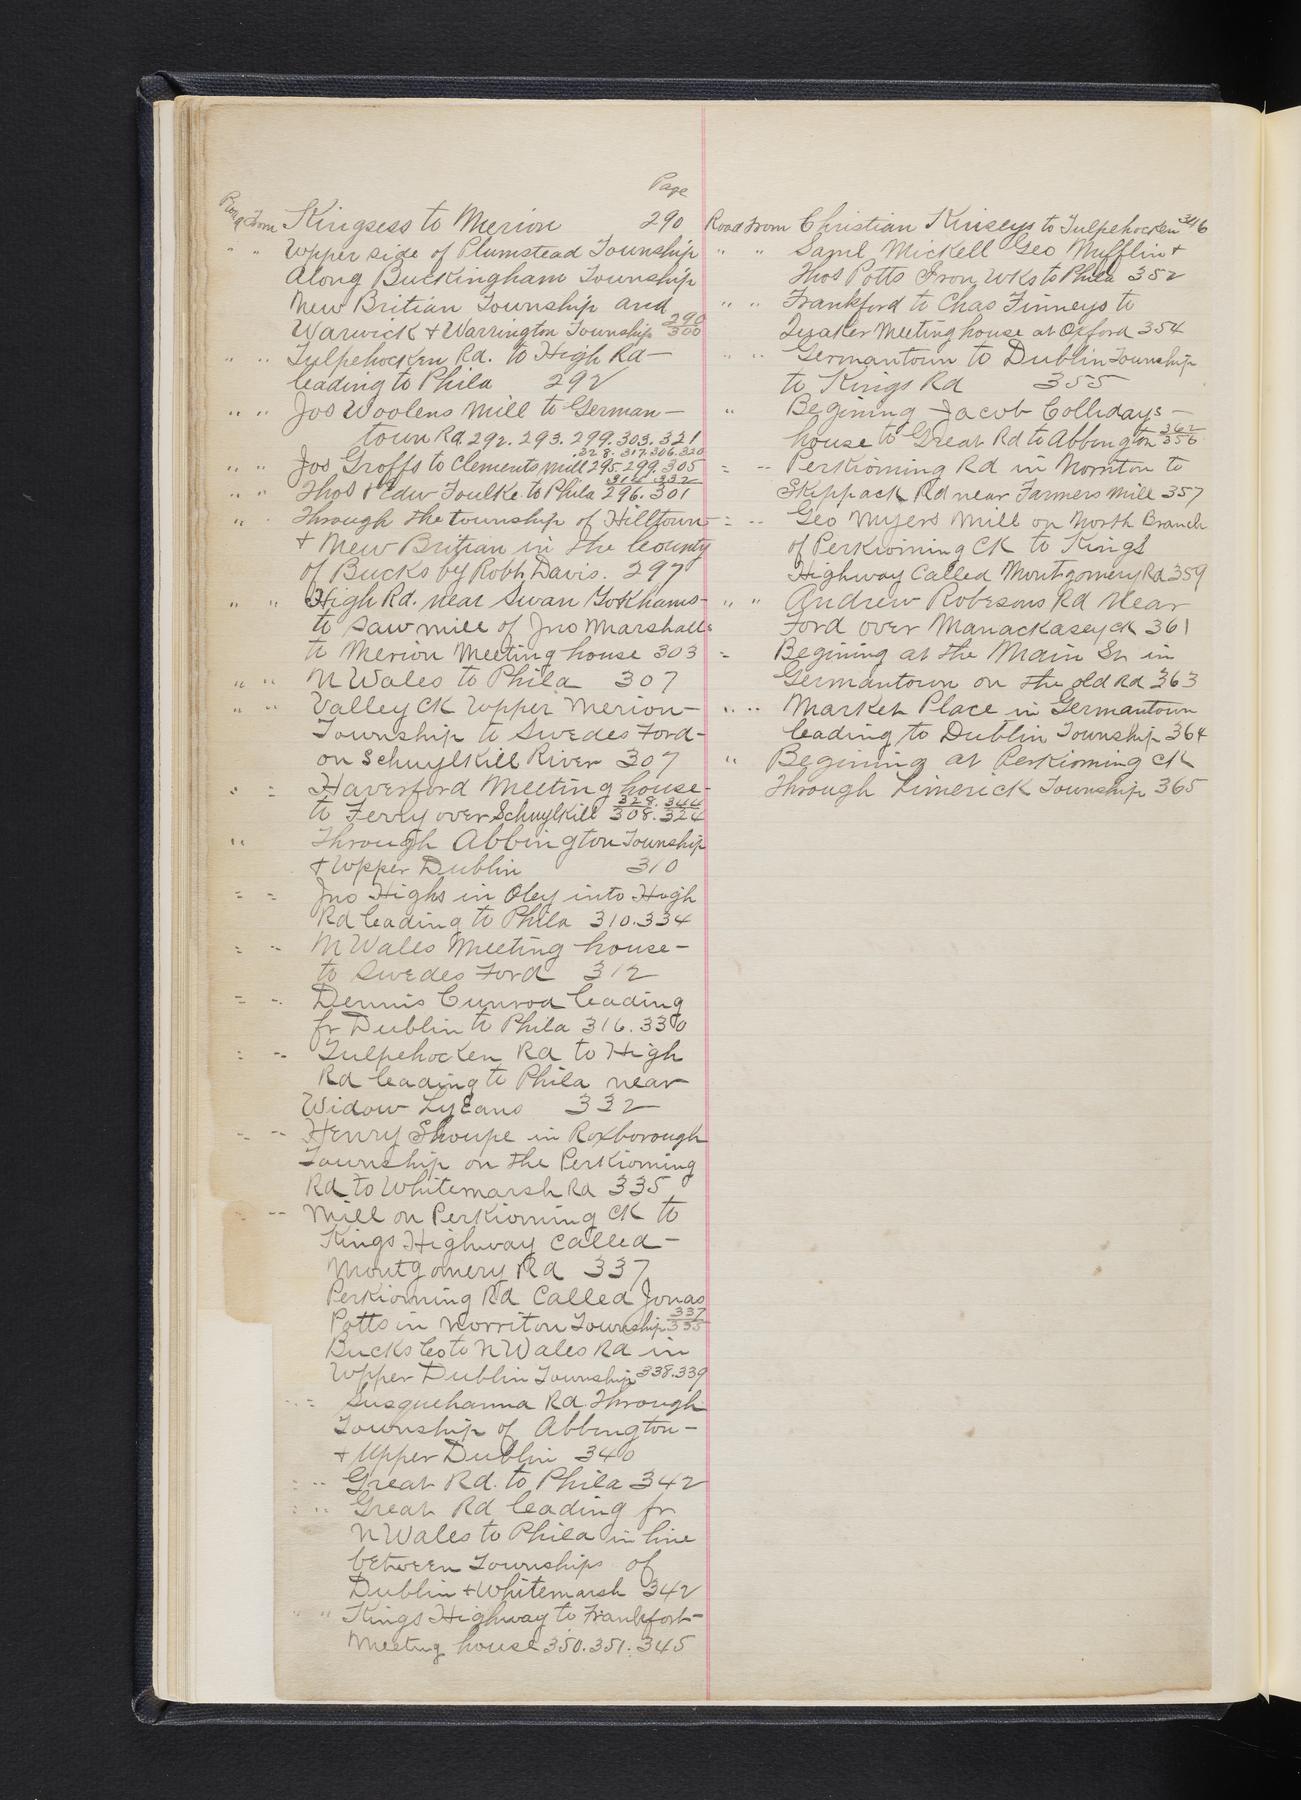 Page
Road From Kingsess to Merion 290
" " Upper side of Plumstead Township
Along Buckingham Township
New Britian Township and
Warwick & Warrington Township 290 300
" " Tulpehocken Rd. to High Rd—
leading to Phila 292
" " Jos Woolens Mill to German—
town Rd. 292. 293. 299. 303. 321
.328. 317. 306. 320
" " Jos Groffs to Clements Mill 295. 299. 305
" " Thos & Edw Foulke to Phila 296. 301
" " Through the township of Hilltown
& New Britian in the County
of Bucks by Robt Davis. 297
" " High Rd. near Swan
to Saw mill of Jno Marshalls
to Merion Meeting house 303
" " N Wales to Phila 307
" " Valley Ck Upper Merion—
Township to Swedes Ford—
on Schuylkill River 307
" " Haverford Meeting house—
to Ferry over Schuylkill 329. 344 308. 324
" Through Abbington Township
& Upper Dublin 310
" " Jno Highs in Oley into High
Rd leading to Phila 310. 334
" " N Wales Meeting house—
to Swedes Ford 312
" " Dennis Cunrod leading
fr Dublin to Phila 316. 330
" " Tulpehocken Rd to High
Rd leading to Phila near
Widow 332
" " Henry Shoupe in Roxborough
Township on the Perkioming
Rd to Whitemarsh Rd 335
" " Mill on Perkioming Ck to
Kings Highway called—
Montgomery Rd 337
Perkioming Rd Called Jonas
Potts in Norriton Township 337 355
Bucks Co to N Wales Rd in
Upper Dublin Township 338. 339
" " Susquehanna Rd. Through
Township of Abbington—
& Upper Dublin 340
" " Great Rd. to Phila 342
" " Great Rd leading fr
N Wales to Phila in line
between Townships of
Dublin & Whitemarsh 342
" " Kings Highway to Frankfort—
Meeting house 350. 351. 345
Road From Christian Kinseys to Tulpehocken 346
" " Saml Mickell Geo Mifflin &
Thos Potts Iron Wks to Phila 352
" " Frankford to Chas Finneys to
Quaker Meeting house at Oxford 354
" " Germantown to Dublin Township
to Kings Rd 355
" Begining Jacob Collidays—
house to Great Rd to Abbington 362 356
" " Perkioming Rd in Norriton to
Skippack Rd near Farmers Mill 357
" " Geo Myers Mill on North Branch
of Perkioming Ck to Kings
Highway Called Montgomery Rd 359
" " Andrew Robesons Rd Near
Ford over Manackasey Ck 361
" Begining at the Main St. in
Germantown on the old Rd 363
" " Market Place in Germantown
leading to Dublin Township 364
" Begining at Perkioming Ck
Through Limerick Township 365